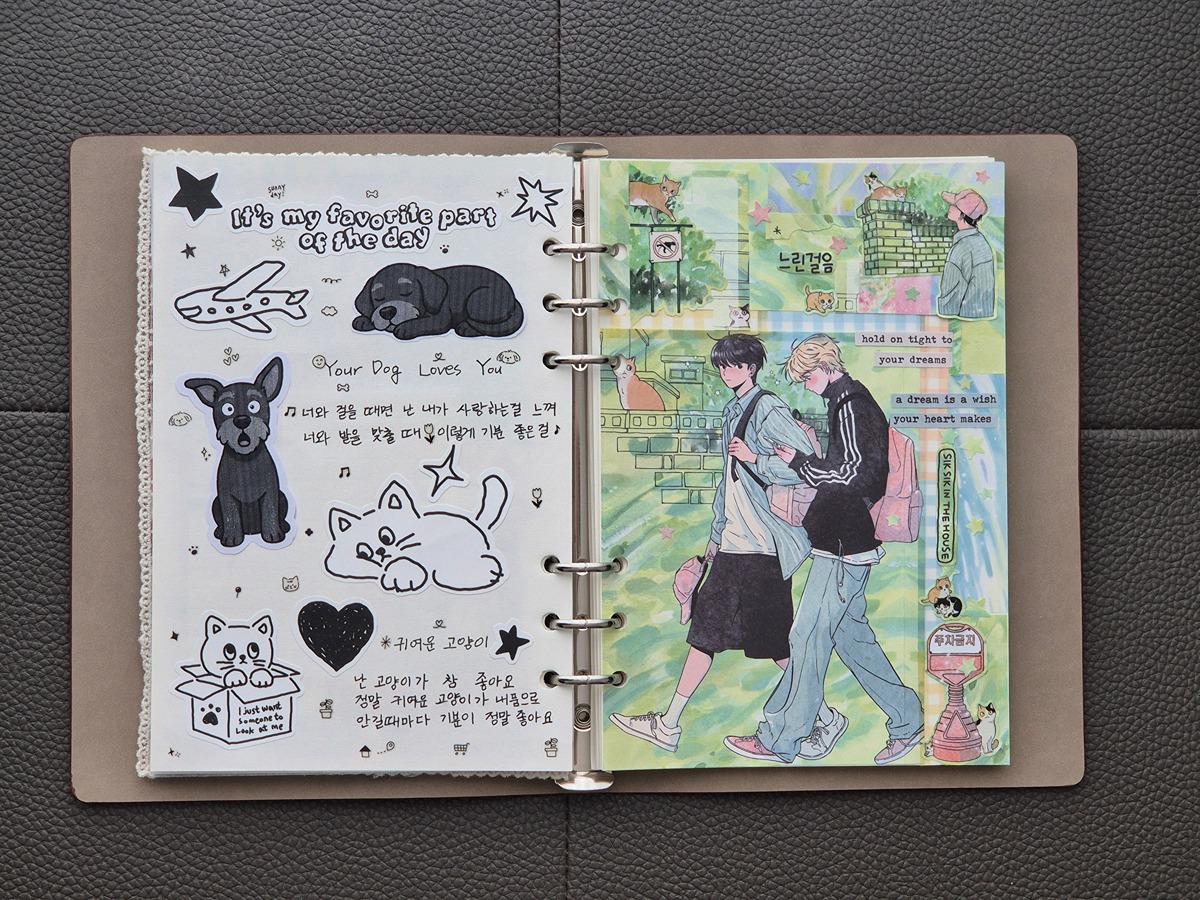 sunny
day!
It's my favorite part
of the day
Your Dog Loves You
너와 걸을 때면 난 내가 사랑하는걸 느껴
너와 발을 맞출 때 이렇게 기분 좋은걸
귀여운 고양이
난 고양이가 참 좋아요
정말 귀여운 고양이가 내품으로
안길때마다 기분이 정말 좋아요
I just want
someone to
Look at me
느린걸음
hold on tight to
your dreams
a dream is a wish
your heart makes
SIK SIK IN THE HOUSE
주차금지